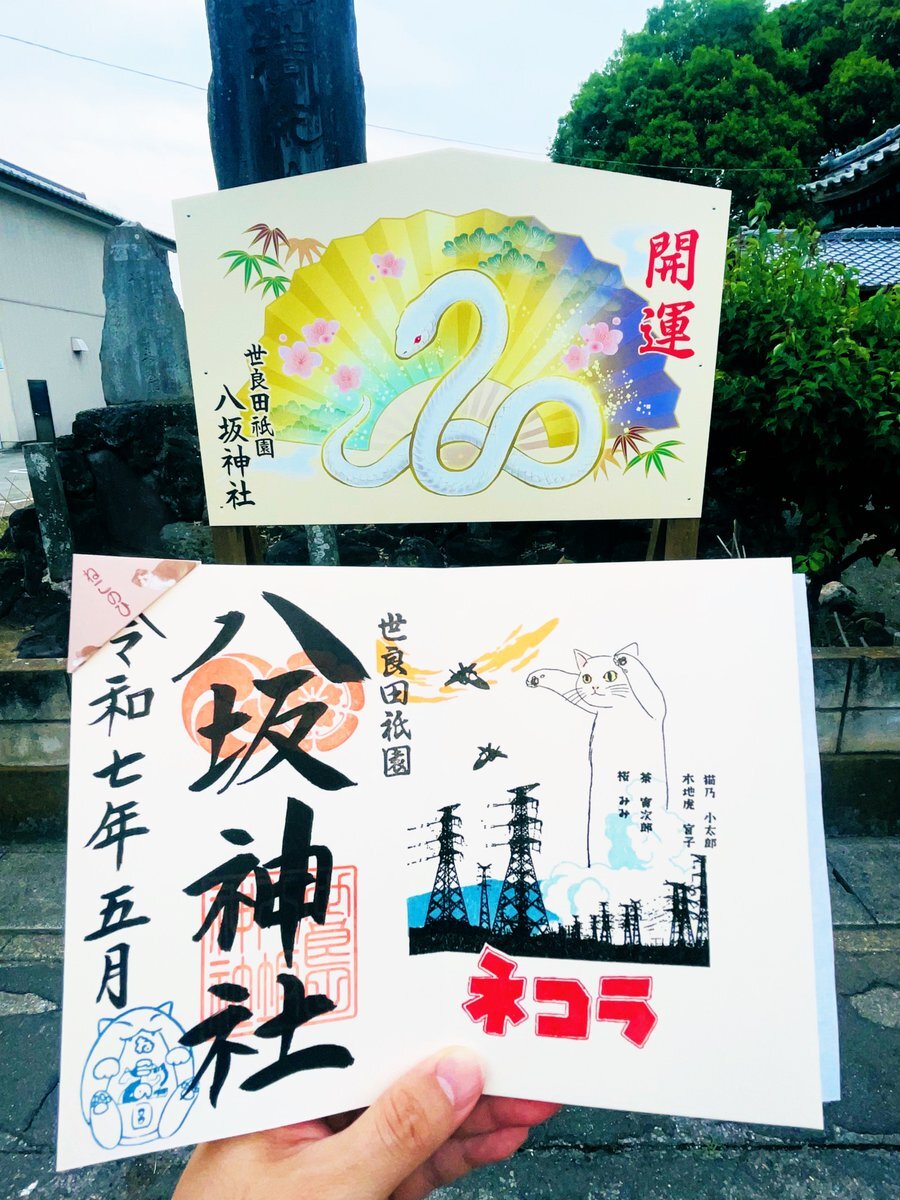 開運
世良田祇園
八坂神社
ねこのひ
世良田祇園
八坂神社
令和七年五月
猫乃 小太郎
木地虎 宮子
茶 寅次郎
桜 みみ
ネコラ